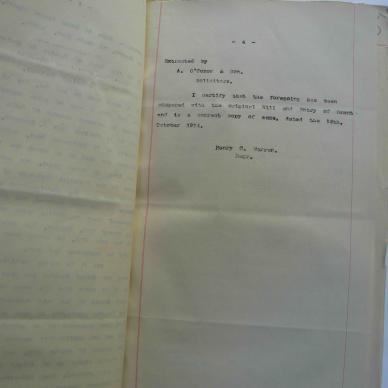 - 4 -
Extracted by
A. O'Connor & Son.
Solicitors.
I certify that the foregoing has been
compared with the original Will and Entry of Grant
and is a correct copy of same, dated the
October 1914.
Henry C. Warren.
Regr.